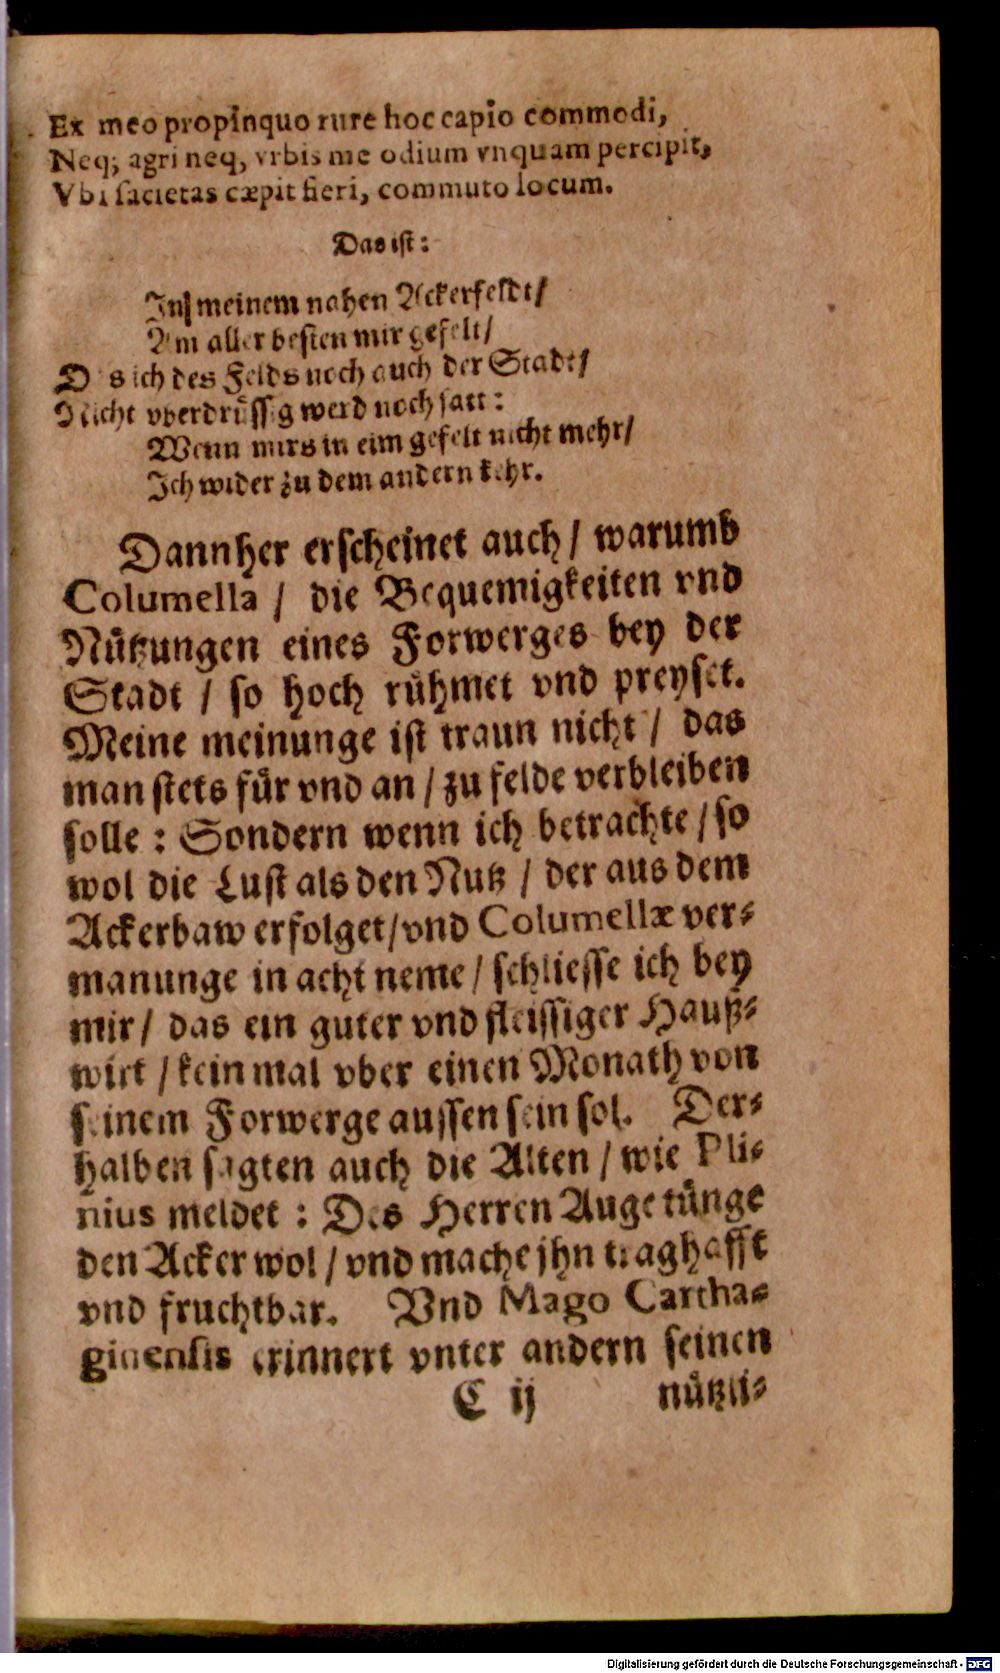 Ex meo propinquo rure hoc capio commodi,
Neq; agri neq, vrbis me odium vnquam percipit,
Vbi sacietas cæpit fieri, commuto locum.
Das ist:
In meinem nahen Ackerfeldt/
Am aller besten mir gefelt/
Das ich des Felds noch auch der Stadt/
Nicht vberdrüssig werd noch satt:
Wenn mirs in eim gefelt nicht mehr/
Ich wider zu dem andern kehr.
Dannher erscheinet auch / warumb
Columella / die Bequemigkeiten vnd
Nützungen eines Forwerges bey der
Stadt / so hoch rühmet vnd preyset.
Meine meinunge ist traun nicht / das
man stets für vnd an / zu felde verbleiben
solle : Sondern wenn ich betrachte / so
wol die Lust als den Nutz / der aus dem
Ackerbaw erfolget/vnd Columellæ ver-
manunge in acht neme / schliesse ich bey
mir / das ein guter vnd fleissiger Hauß-
wirt / kein mal vber einen Monath von
seinem Forwerge aussen sein sol. Der-
halben sagten auch die Alten / wie Pli-
nius meldet : Des Herren Auge tünge
den Acker wol / vnd mache jhn traghafft
vnd fruchtbar. Vnd Mago Cartha-
ginensis erinnert vnter andern seinen
C ij nützli-
Digitalisierung gefördert durch die Deutsche Forschungsgemeinschaft - DFG